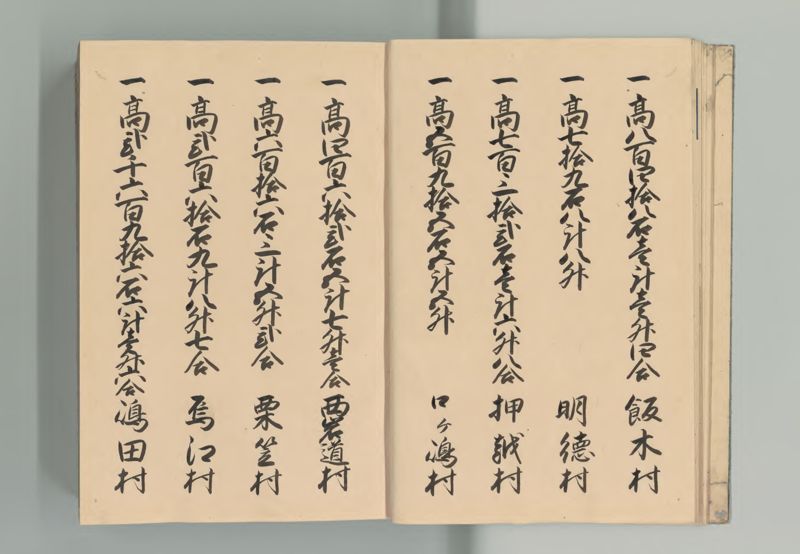 一高八百四拾八石壱斗壱升四合 飯木村
一高七拾九石八斗八升 明徳村
一高七百三拾弐石壱斗六升八合 押越村
一高五百九拾五石五斗五升 口ヶ嶋村
一高四百六拾弐石五斗七升壱合 西岩道村
一高六百拾六石三斗五升弐合 栗笠村
一高弐百六拾石九斗八升七合 烏江村
一高弐千六百九拾六石六斗壱升六合 嶋田村